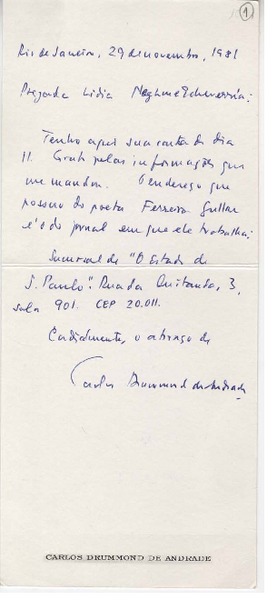 1
Rio de Janeiro, 29 de novembro, 1981
Prezada Lidia Neghme Echeverría:
Tenho aqui sua carta do dia
11. Grato pelas informações que
me mandou. O endereço que
possuo do poeta Ferreira Gullar
é o do jornal em que ele trabalha:
Sucursal de "O Estado de
S. Paulo". Rua da Quitanda, 3,
sala 901. CEP 20.011.
Cordialmente, o abraço de
Carlos Drummond de Andrade
CARLOS DRUMMOND DE ANDRADE